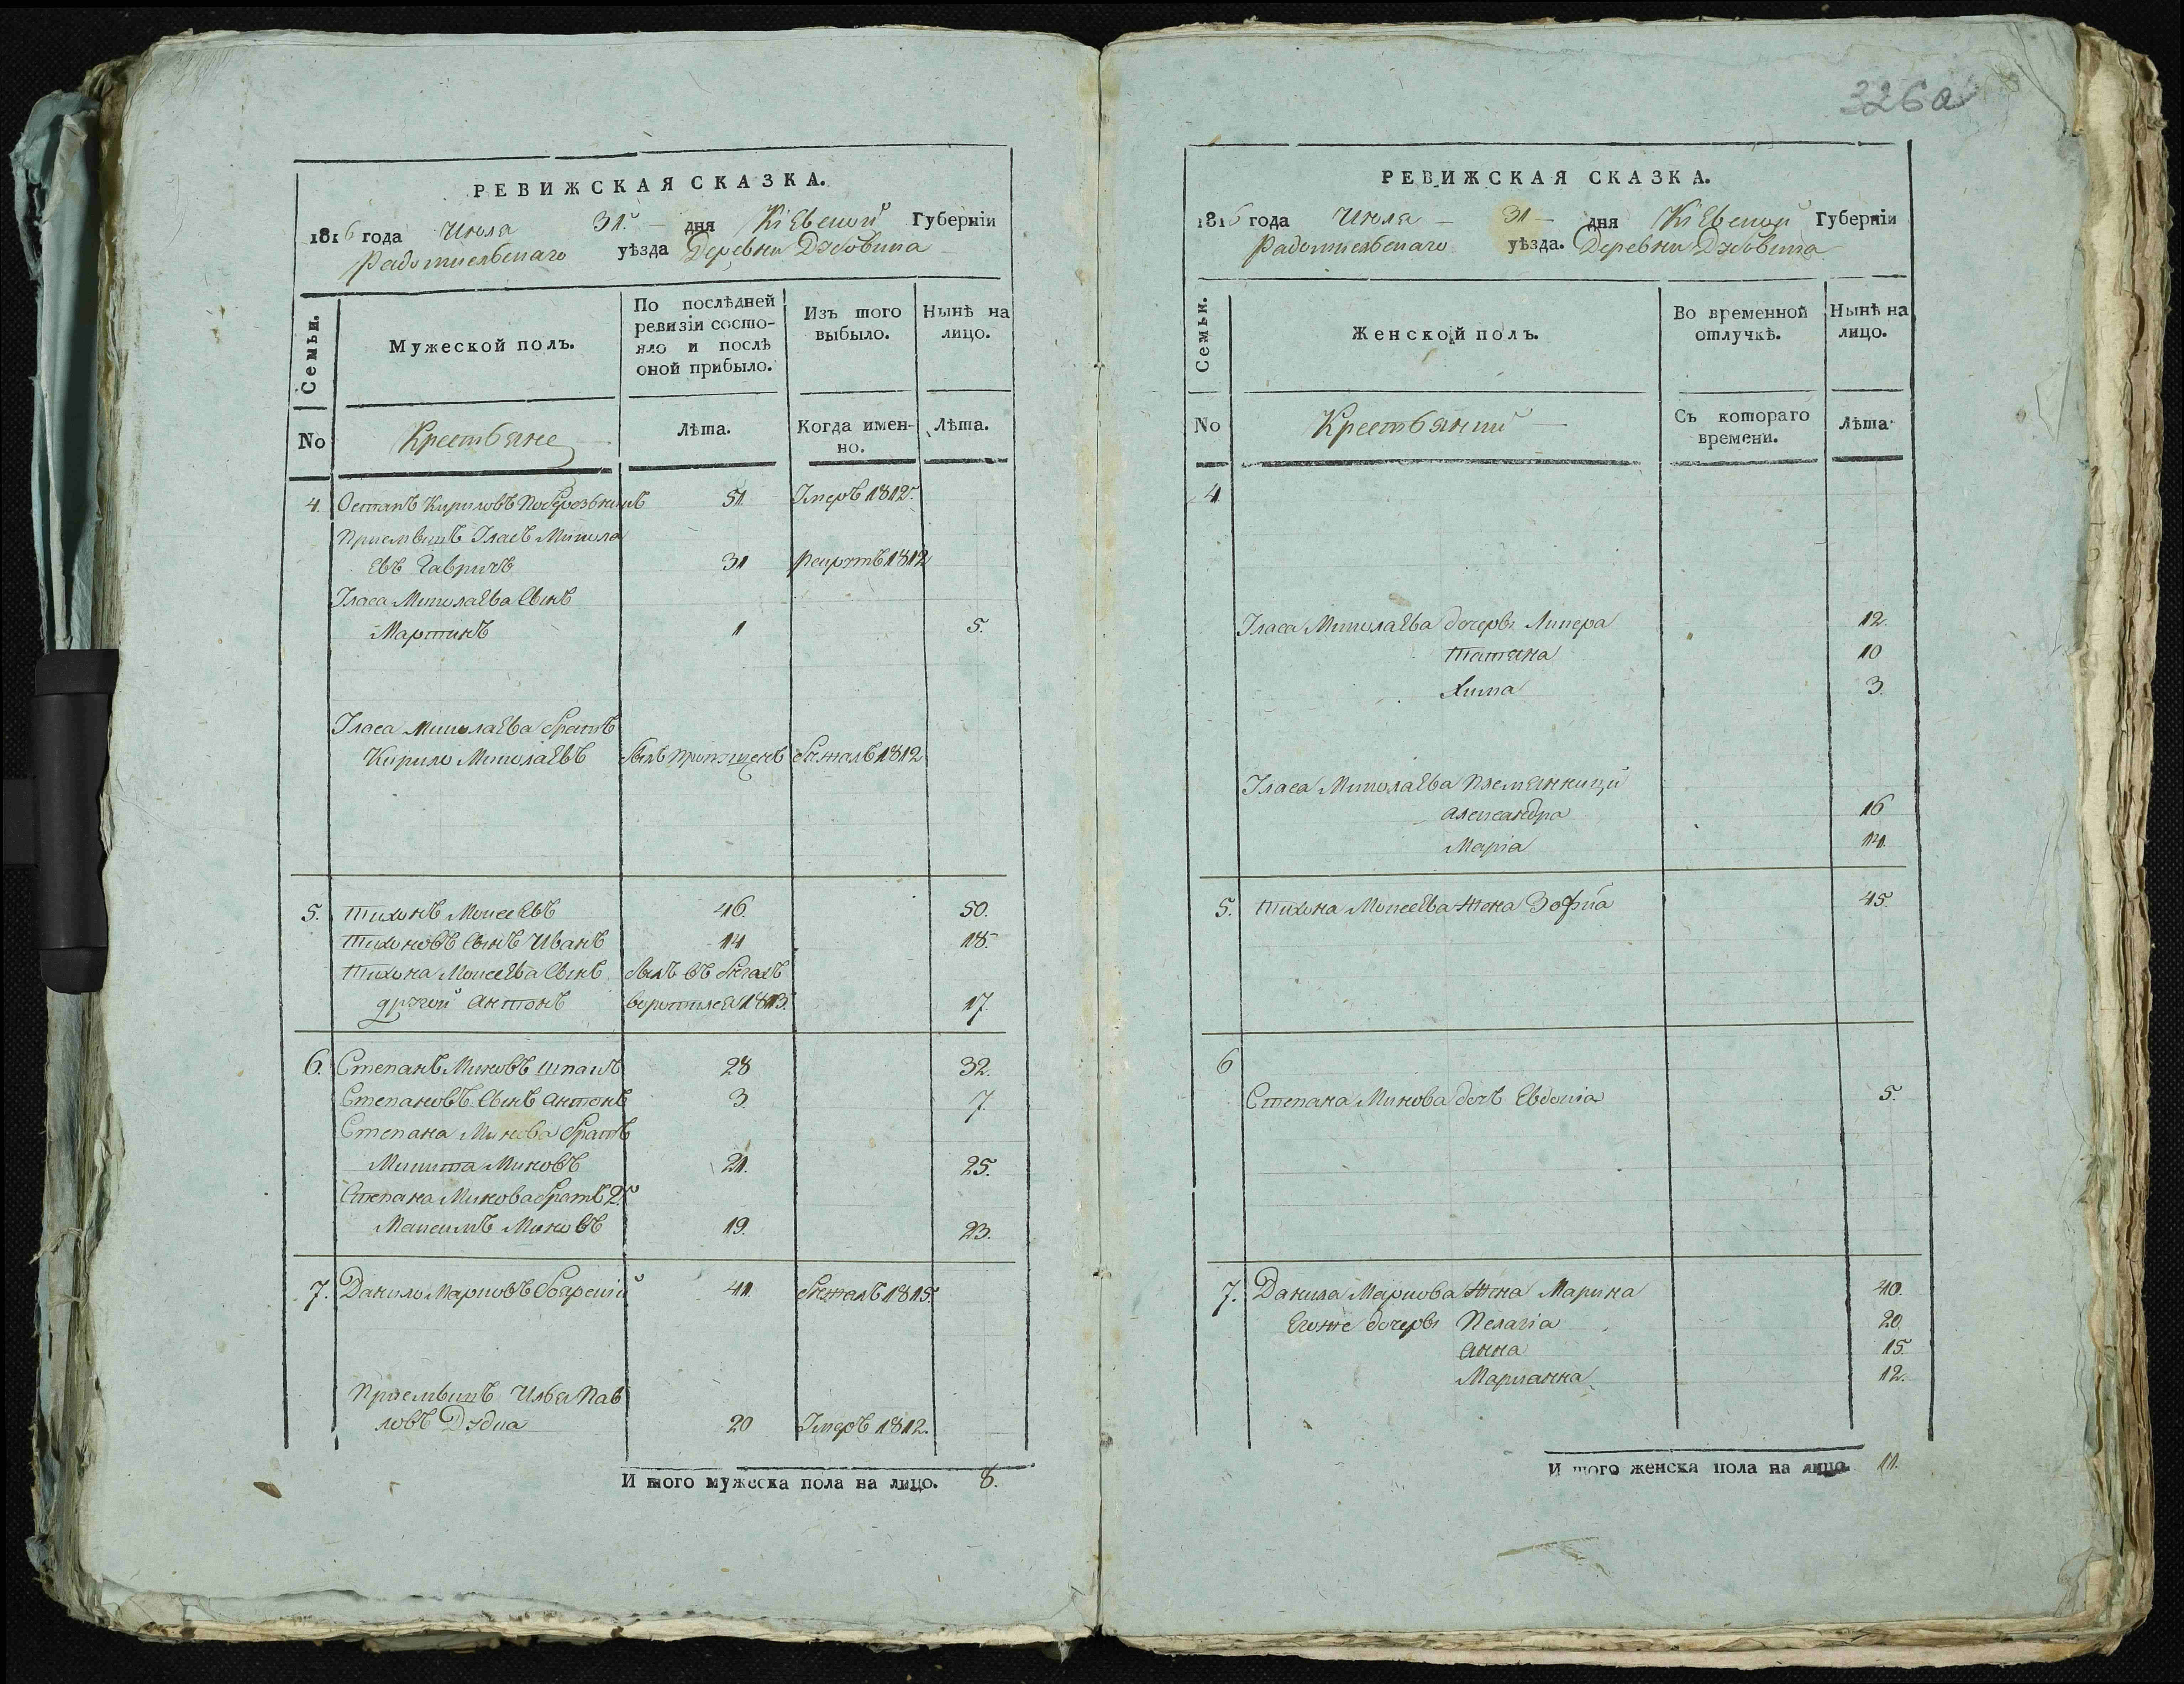 РЕВИЖСКАЯ СКАЗКА.
1816 года Июля 31. дня Кіевской Губерніи
Радомысльскаго уѣзда Деревни
Семьи.
Мужеской полъ.
По послѣдней ревизіи состояло и послѣ оной прибыло.
Изъ того выбыло.
Нынѣ на лицо.
No Крестьяне Лѣта. Когда именно. Лѣта.
4. Остапъ Кириловъ 51 Умеръ 1812.
Приемышъ Уласъ Микола
евъ Гавричъ 31 рекрутъ 1812
Уласа Миколаева сынъ
Мартинъ 1 5.
Уласа Миколаева братъ
Кирило Миколаевъ былъ пропущенъ бежалъ 1812
5. Тихонъ Моисеевъ 46. 50.
Тихоновъ сынъ Иванъ 14 18.
Тихона Моисеева сынъ былъ въ бегахъ
другой Антонъ воротился 1813. 17.
6. Степанъ Миновъ Шпакъ 28 32.
Степановъ сынъ Антонъ 3. 7.
Степана Минова братъ
Микита Миновъ 21. 25.
Степана Минова братъ 2й
Максимъ Миновъ 19. 23.
7. Данило Марковъ Боярскій 41 бежалъ 1815.
Приемышъ Илья Пав
ловъ Дудка 20 Умеръ 1812.
И того мужеска пола на лицо. 8.
326а
РЕВИЖСКАЯ СКАЗКА.
1816 года Июля 31 дня Кіевской Губерніи
Радомысльскаго уѣзда. Деревни
Семьи.
Женской полъ.
Во временной отлучкѣ.
Нынѣ на лицо.
No Крестьянки Съ котораго времени. Лѣта
4
Уласа Миколаева дочеры 12.
Татяна 10
Хима 3.
Уласа Миколаева племянницы
Александра 16
Маріа 14.
5. Тихона Моисеева жена Зофиа 45
6
Степана Минова дочъ Евдокіа 5.
7. Данила Маркова жена Марина 40.
Егоже дочеры Пелагіа 20.
Анна 15.
Марианна 12.
И того женска пола на лицо 11.